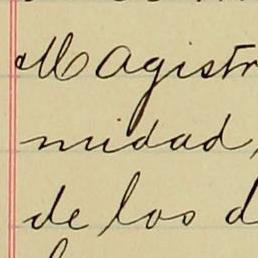 Magistr
midad,
de los d